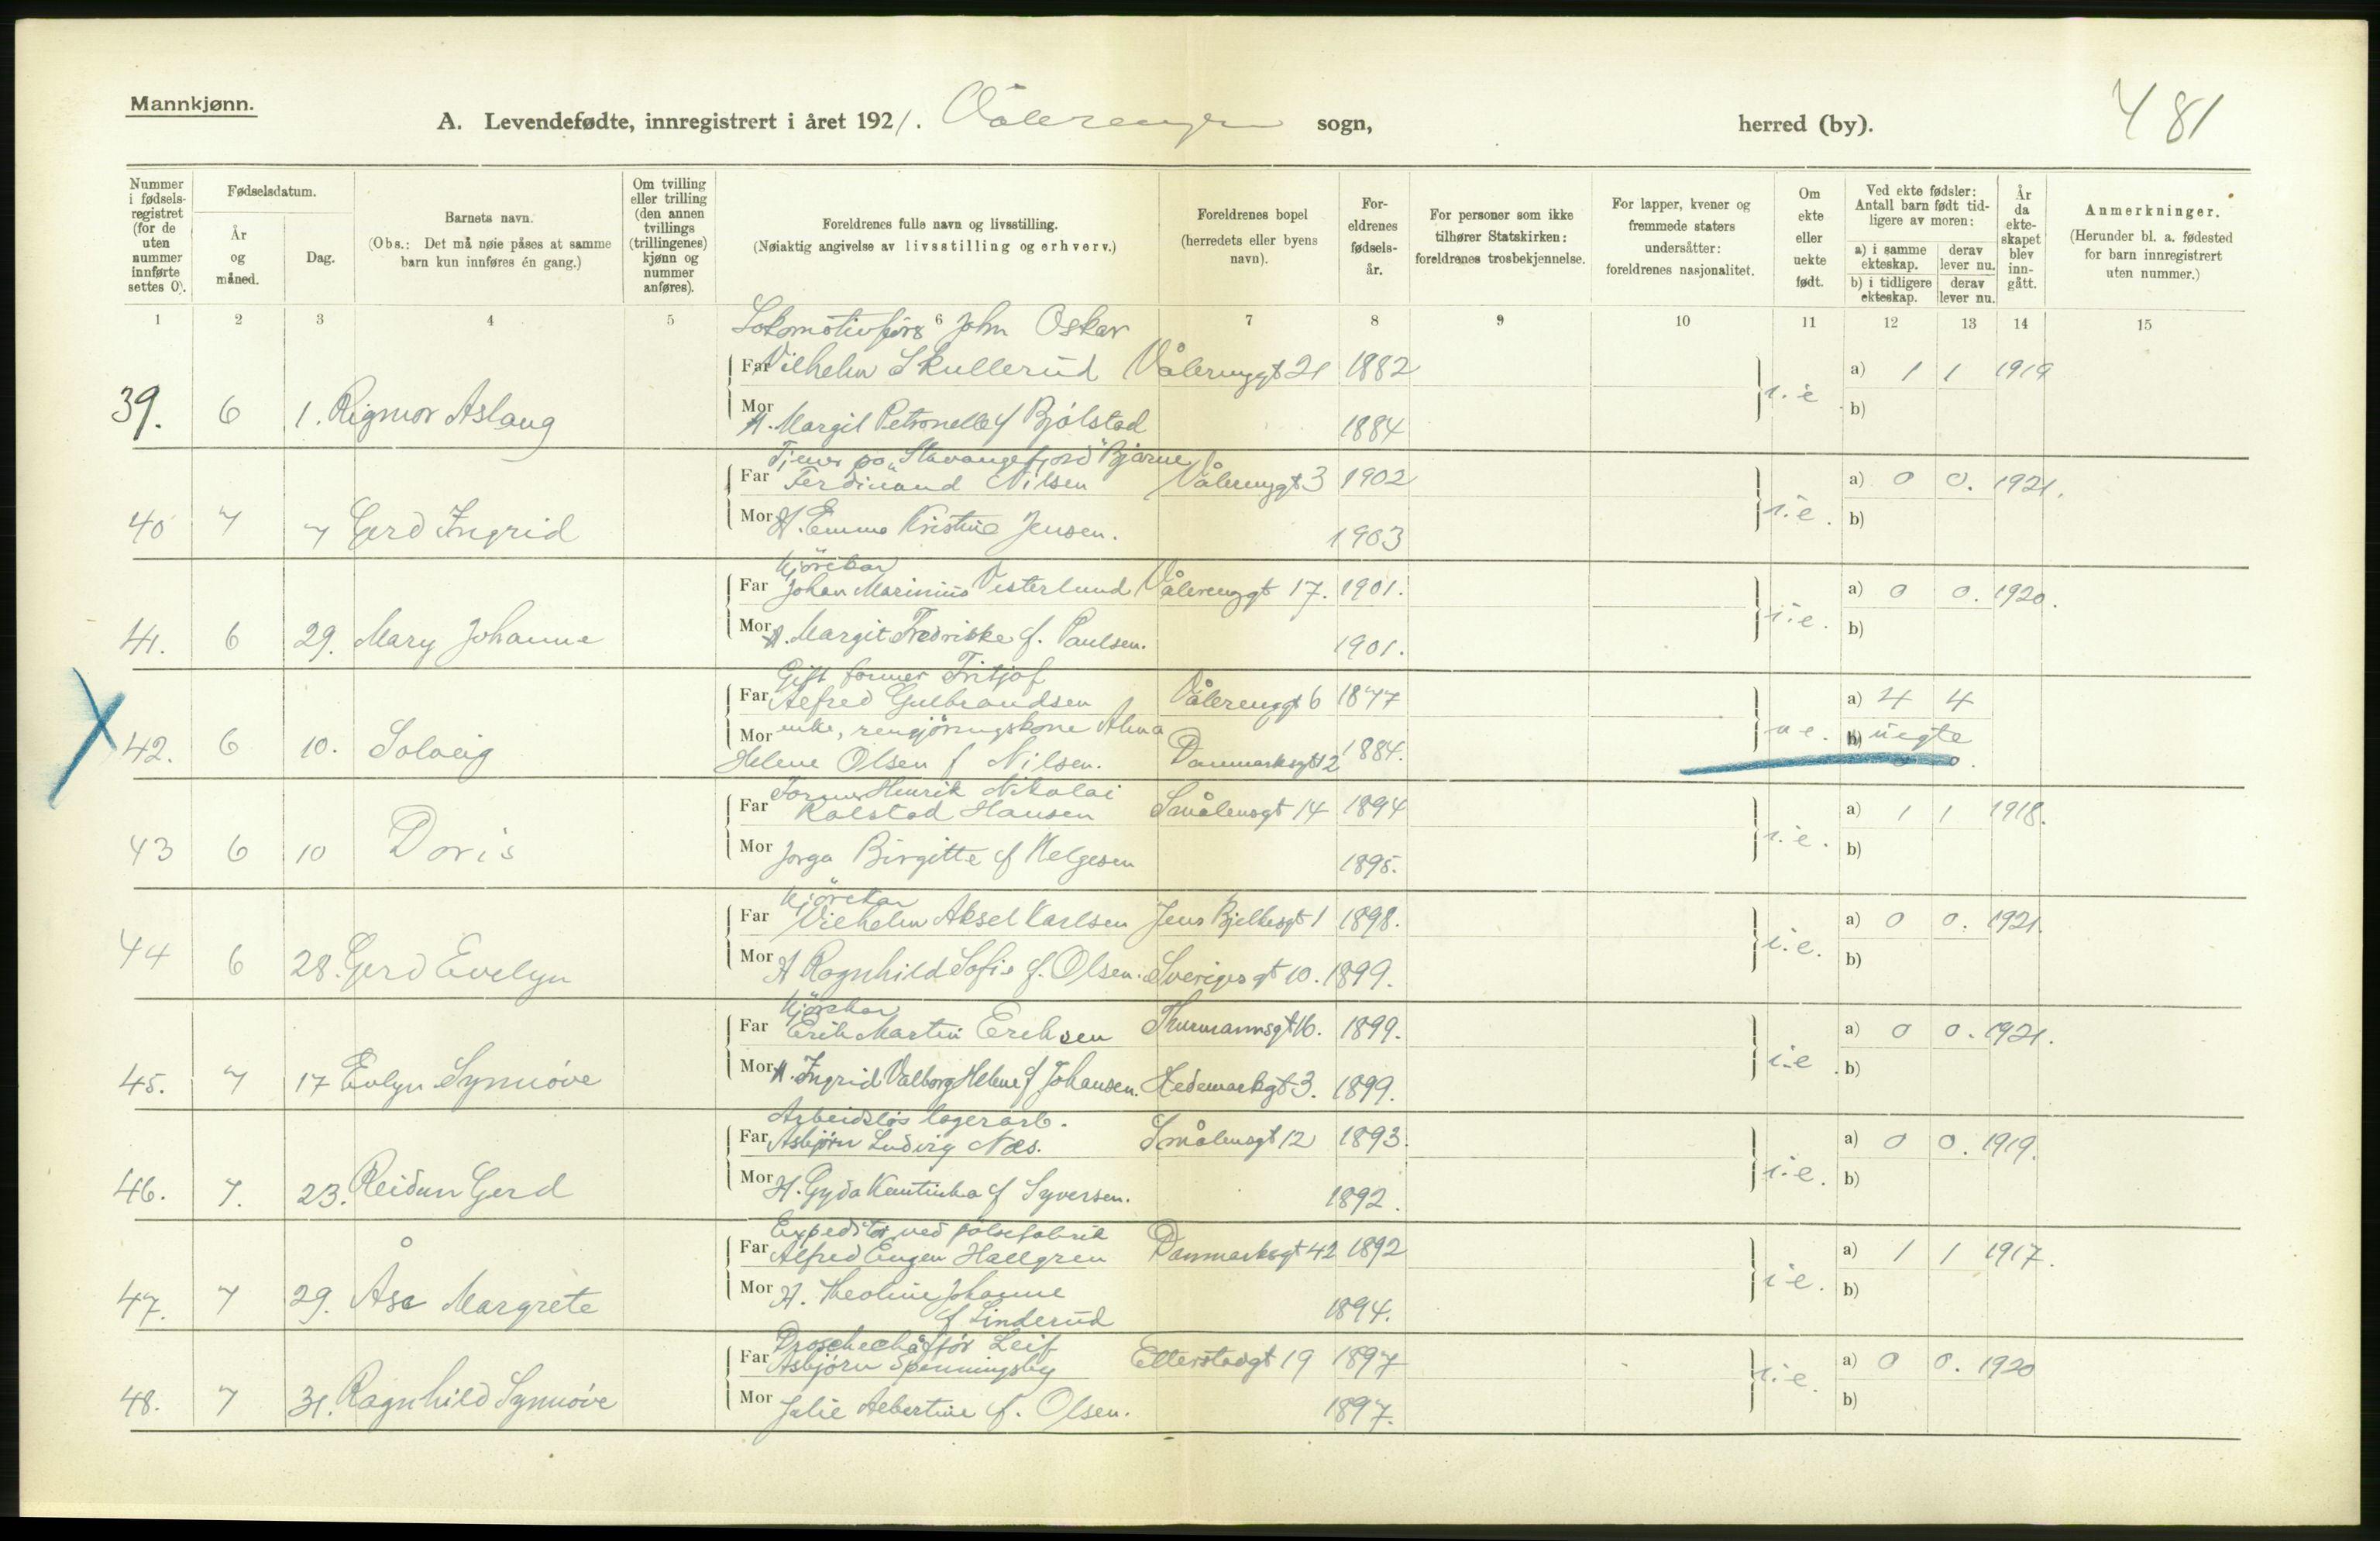 Mannkjønn.
A. Levendefødte, innregistrert i året 1921. Vålerengen sogn, herred (by). 481
Nummer i fødselsregistret (for de uten nummer innførte settes 0).
Fødselsdatum.
År og måned.
Dag.
Barnets navn.
(Obs.: Det må nøie påses at samme barn kun innføres én gang.)
Om tvilling eller trilling (den annen tvillings (trillingenes) kjønn og nummer anføres).
Foreldrenes fulle navn og livsstilling.
(Nøiaktig angivelse av livsstilling og erhverv.)
Foreldrenes bopel (herredets eller byens navn).
Foreldrenes fødselsår.
For personer som ikke tilhører Statskirken: foreldrenes trosbekjennelse.
For lapper, kvener og fremmede staters undersåtter: foreldrenes nasjonalitet.
Om ekte eller uekte født.
Ved ekte fødsler: Antall barn født tidligere av moren:
a) i samme ekteskap. derav lever nu.
b) i tidligere ekteskap. derav lever nu.
År da ekteskapet blev inngått.
Anmerkninger.
(Herunder bl. a. fødested for barn innregistrert uten nummer.)
1 2 3 4 5 6 7 8 9 10 11 12 13 14 15
Lokomotivfører John Oskar
Far Vilhelm Skullerud Vålerenggt 21 1882 a) 1 1 1919
39. 6 1. Rigmor Aslaug i.e b)
Mor H. Margit Petronelle f Bjølstad 1884
Tjener på "Stavangerfjord" Bjarne
Far Ferdinand Nilsen Vålerenggt 3 1902 a) 0 0. 1921.
40 7 7 Gerd Ingrid i.e. b)
Mor H. Emma Kristine Jensen. 1903
Kjørekar
Far Johan Marinius Vesterlund Vålerenggt 17. 1901. a) 0 0. 1920.
41. 6 29. Mary Johanne i.e. b)
Mor H. Margit Fredrikke f. Paulsen. 1901.
Gift former Fritjof
Far Alfred Gulbrandsen Vålerenggt 6 1877 a) 4 4
Mor enke, rengjøringskone Alma u e. b) uegte
42. 6 10. Solveig Helene Olsen f Nilsen. Danmarksgt 12 1884. 0 0.
Former Henrik Nikolai
Far Kolstad Hansen Smålensgt 14 1894 a) 1 1 1918.
43 6 10 Doris i.e. b)
Mor Jorga Birgitte f Helgesen 1895.
Kjørekar
Far Vilhelm Aksel Karlsen Jens Bjelkesgt 1 1898. a) 0 0. 1921.
44 6 28. Gerd Evelyn i.e. b)
Mor H Ragnhild Sofie f. Olsen. Sverigesgt 10. 1899.
Kjørekar
Far Erik Martin Eriksen Thurmannsgt 16. 1899. a) 0 0. 1921.
45. 7 17 Evlyn Synnøve i.e. b)
Mor H. Ingrid Valborg Helene f Johansen. Hedemarkgt 3. 1899.
Arbeidsløs lagerarb.
Far Asbjørn Ludvig Næs. Smålensgt 12 1893. a) 0 0. 1919.
46. 7. 23. Reidun Gerd i.e. b)
Mor H. Gyda Kantinka f Syversen. 1892.
Expeditør ved pølsefabrik
Far Alfred Eugen Hallgren Danmarksgt 42 1892 a) 1 1 1917.
47. 7 29. Åse Margrete i e. b)
Mor H. Theoline Johanne
f Linderud 1894.
Droschechåffør Leif
Far Asbjørn Spenningsby Etterstadgt 19 1897 a) 0 0. 1920
48. 7 31. Ragnhild Synnøve i.e. b)
Mor Julie Albertine f. Olsen. 1897.